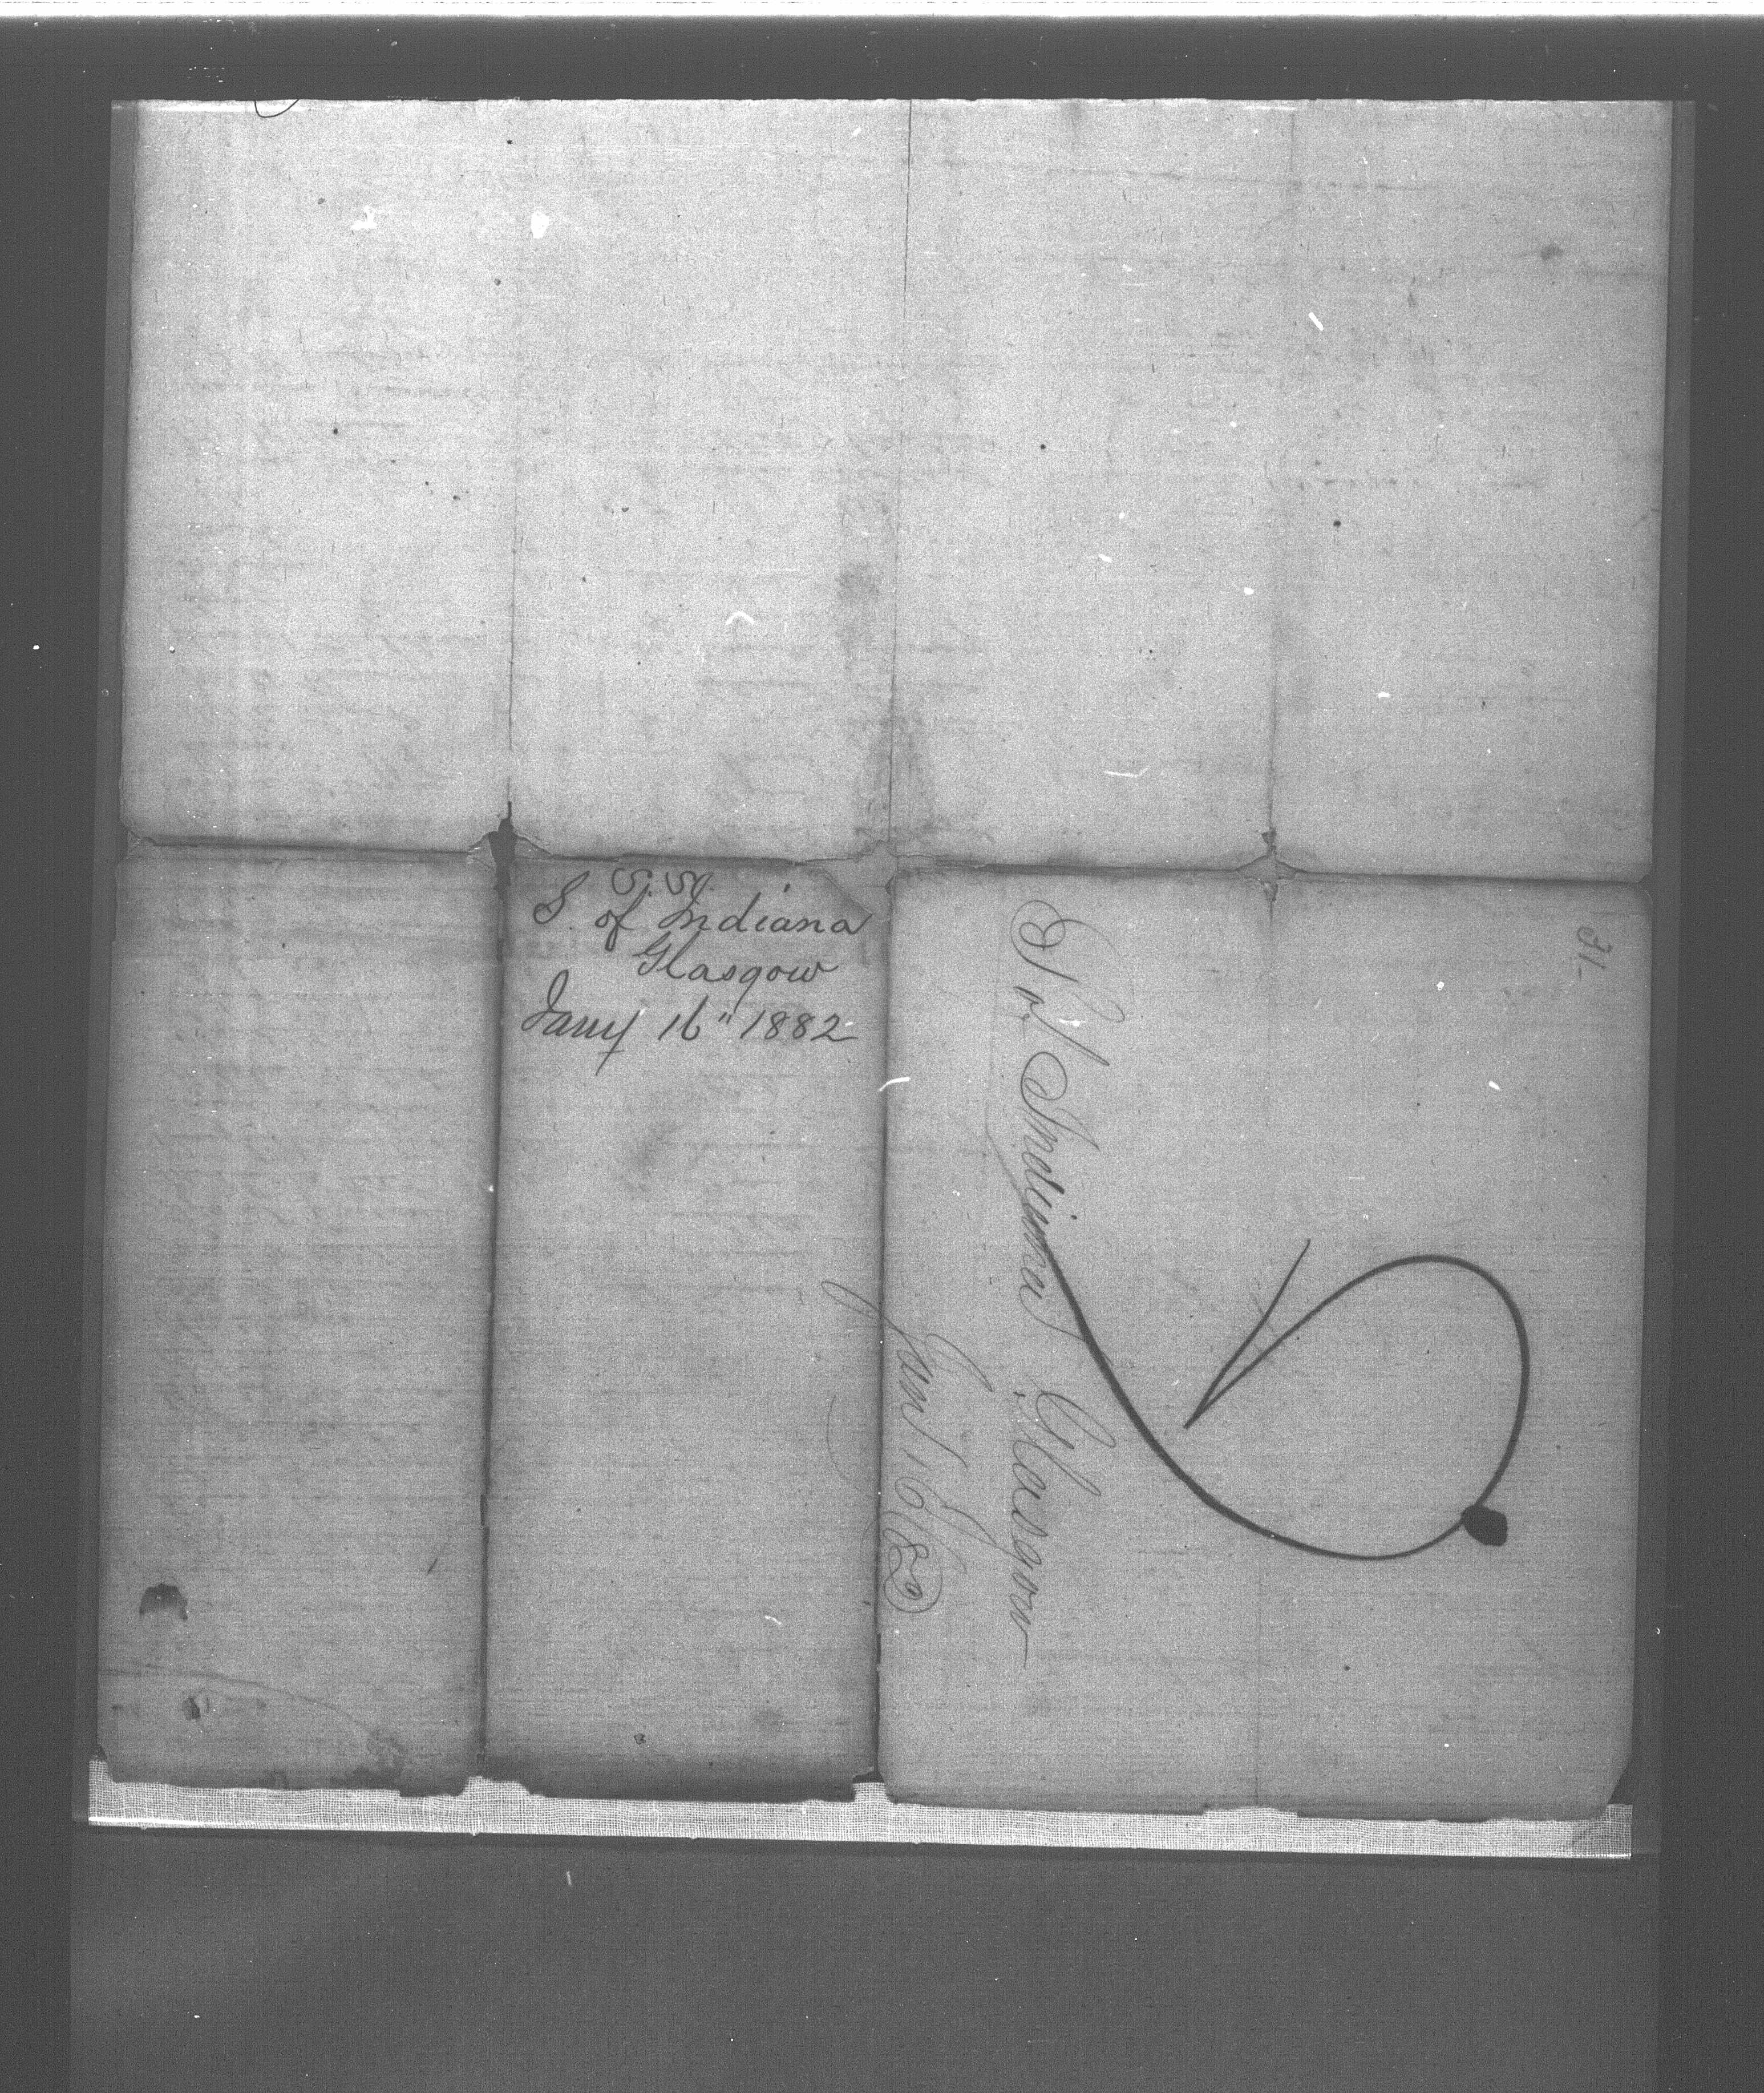 S.S.
S. of Indiana
Glasgow
Jany 16" 1882
S of Indiana Glasgow
Jan 16/82
31